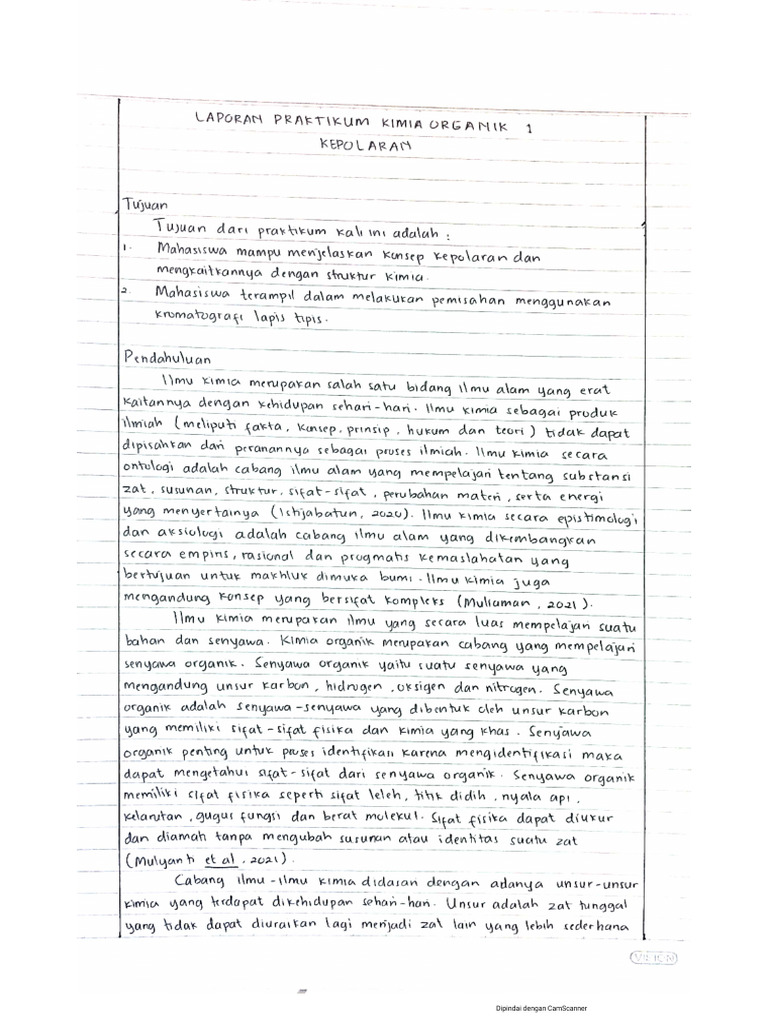 LAPORAN PRAKTIKUM KIMIA ORGANIK 1
KEPOLARAN
Tujuan
Tujuan dari praktikum kali ini adalah :
1. Mahasiswa mampu menjelaskan konsep kepolaran dan
mengkaitkannya dengan struktur kimia.
2. Mahasiswa terampil dalam melakukan pemisahan menggunakan
kromatografi lapis tipis.
Pendahuluan
Ilmu kimia merupakan salah satu bidang ilmu alam yang erat
kaitannya dengan kehidupan sehari-hari. Ilmu kimia sebagai produk
ilmiah (meliputi fakta, konsep, prinsip, hukum dan teori) tidak dapat
dipisahkan dari peranannya sebagai proses ilmiah. Ilmu kimia secara
ontologi adalah cabang ilmu alam yang mempelajari tentang substansi
zat, susunan, struktur, sifat-sifat, perubahan materi, serta energi
yang menyertainya (Istijabatun, 2020). Ilmu kimia secara epistimologi
dan aksiologi adalah cabang ilmu alam yang dikembangkan
secara empiris, rasional dan pragmatis kemaslahatan yang
bertujuan untuk makhluk dimuka bumi. Ilmu kimia juga
mengandung konsep yang bersifat kompleks (Muliaman, 2021).
Ilmu kimia merupakan ilmu yang secara luas mempelajari suatu
bahan dan senyawa. Kimia organik merupakan cabang yang mempelajari
senyawa organik. Senyawa organik yaitu suatu senyawa yang
mengandung unsur karbon, hidrogen, oksigen dan nitrogen. Senyawa
organik adalah senyawa-senyawa yang dibentuk oleh unsur karbon
yang memiliki sifat-sifat fisika dan kimia yang khas. Senyawa
organik penting untuk proses identifikasi karena mengidentifikasi maka
dapat mengetahui sifat-sifat dari senyawa organik. Senyawa organik
memiliki sifat fisika seperti sifat leleh, titik didih, nyala api,
kelarutan, gugus fungsi dan berat molekul. Sifat fisika dapat diukur
dan diamati tanpa mengubah susunan atau identitas suatu zat
(Mulyanti et al, 2021).
Cabang ilmu-ilmu kimia didasari dengan adanya unsur-unsur
kimia yang terdapat dikehidupan sehari-hari. Unsur adalah zat tunggal
yang tidak dapat diuraikan lagi menjadi zat lain yang lebih sederhana
Dipindai dengan CamScanner